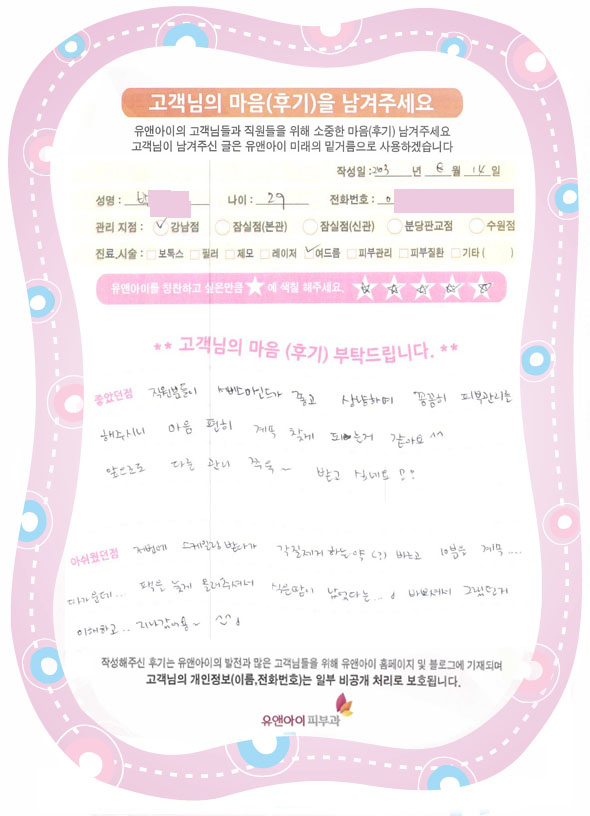 고객님의 마음(후기)을 남겨주세요
유앤아이의 고객님들과 직원들을 위해 소중한 마음(후기) 남겨주세요
고객님이 남겨주신 글은 유앤아이 미래의 밑거름으로 사용하겠습니다
작성일: 2013 년 6 월 14 일
성명 : 박 나이 : 29 전화번호 : 0
관리 지점 : 강남점 잠실점(본관) 잠실점(신관) 분당판교점 수원점
진료,시술 : 보톡스 필러 제모 레이저 여드름 피부관리 피부질환 기타 ( )
유앤아이를 칭찬하고 싶은만큼 ★ 에 색칠 해주세요.
** 고객님의 마음 (후기) 부탁드립니다. **
좋았던점 직원분들이 서비스마인드가 좋고 상냥하며 꼼꼼히 피부관리를
해주시니 마음 편히 계속 찾게 되는거 같아요 ^^
앞으로도 다른 관리 쭈욱~ 받고 싶네요
아쉬웠던점 저번에 스케일링 받다가 각질제거 하는 약(?) 바르고 10분을 계속....
따가운데... 팩을 늦게 올려주셔서 식은땀이 났었다는... 바쁘셔서 그랬던거
이해하고.. 지나갔어용~ ^^
작성해주신 후기는 유앤아이의 발전과 많은 고객님들을 위해 유앤아이 홈페이지 및 블로그에 기재되며
고객님의 개인정보(이름,전화번호)는 일부 비공개 처리로 보호됩니다.
유앤아이피부과